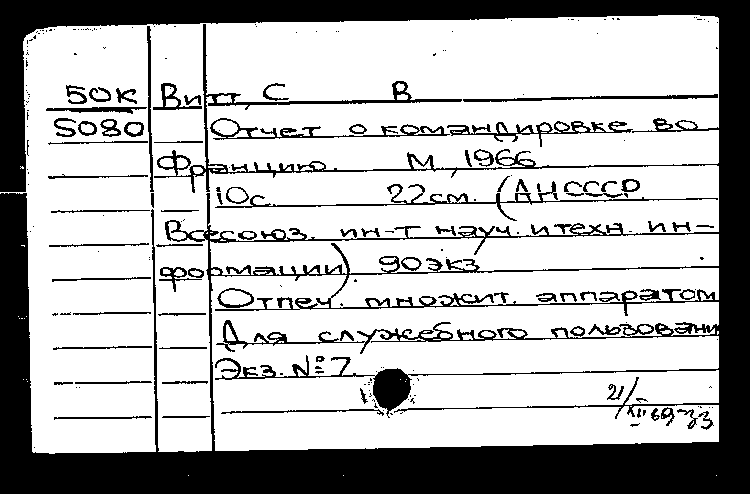 50К Витт, С В
5080 Отчет о командировке во
Францию. М, 1966
10с. 22см. (АН СССР.
Всесоюз. ин-т науч. и техн. ин-
формации). 90экз
Отпеч. множит. аппаратом
Для служебного пользовани
Экз. №7.
21/XII 69